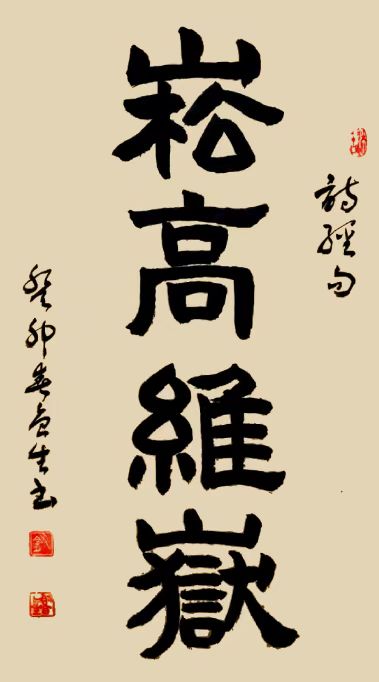 詩經句
崧高維嶽
癸卯春魚生书